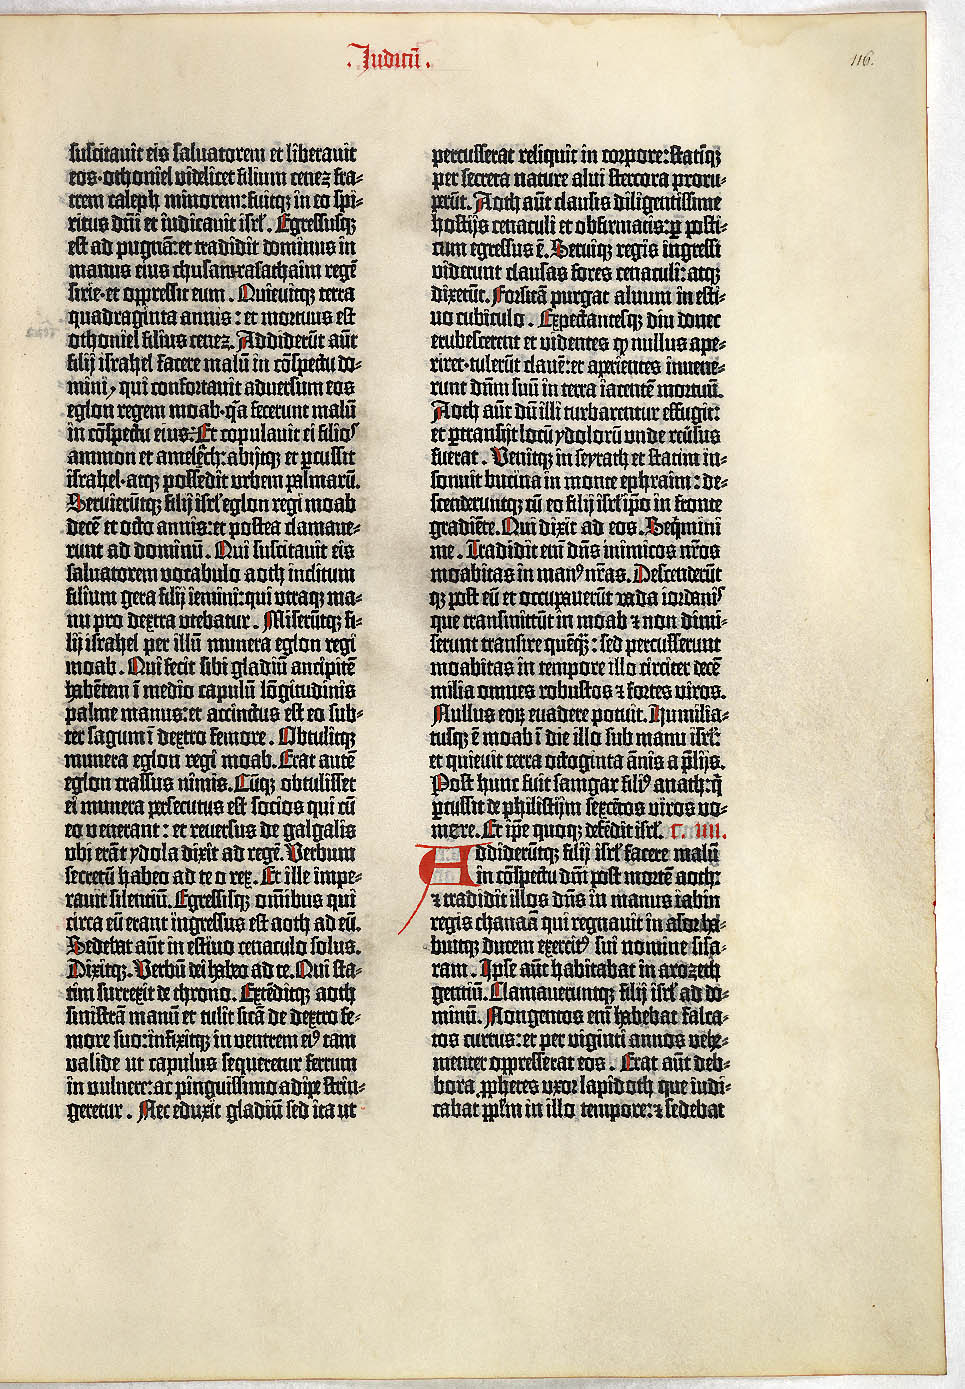 .Iudicū.
116.
suscitauit eis saluatorem et liberauit
eos·othoniel videlicet filium cenez fra-
trem caleph minorem:fuitqꝫ in eo spi-
ritus dnī et iudicauit isrl̄. Egressusqꝫ
est ad pugnā:et tradidit dominus in
manus eius chusam·rasathaim regē
sirie·et oppressit eum. Quieuitqꝫ terra
quadraginta annis: et mortuus est
othoniel filius cenez. Addiderūt aūt
filij israhel facere malū in cōspectu do-
mini, qui confortauit aduersum eos
eglon regem moab·qͣa fecerunt malū
in cōspectu eius. Et copulauit ei filios
ammon et amelech: abijtqꝫ et ꝑcussit
israhel·atqꝫ possedit vrbem palmarū.
Seruierūtqꝫ filij isrl̄ eglon regi moab
decē et octo annis:et postea clamaue-
runt ad dominū. Qui suscitauit eis
saluatorem vocabulo aoth inditum
filium gera filij iemini:qui vtraqꝫ ma-
nu pro dextra vtebatur. Miserūtqꝫ fi-
lij israhel per illū munera eglon regi
moab. Qui fecit sibi gladiū ancipitē
habētem ī medio capulū lōgitudinis
palme manus:et accinctus est eo sub-
ter sagum ī dextro femore. Obtulitqꝫ
munera eglon regi moab. Erat autē
eglon crassus nimis. Cūqꝫ obtulisset
ei munera ꝓsecutus est socios qui cū
eo venerant: et reuersus de galgalis
vbi erāt ydola dixit ad regē. Verbum
secretū habeo ad te o rex. Et ille impe-
rauit silenciū. Egressisqꝫ omībus qui
circa eū erant ingressus est aoth ad eū.
Sedebat aūt in estiuo cenaculo solus.
Dixitqꝫ. Verbū dei habeo ad te. Qui sta-
tim surrexit de throno. Extēditqꝫ aoth
sinistrā manū et tulit sicā de dextro fe-
more suo:infixitqꝫ in ventrem eiꝰ tam
valide ut capulus sequeretur ferrum
in vulnere:ac pinguissimo adipe strin-
geretur. Nec eduxit gladiū sed ita ut
percusserat reliquit in corpore:statīqꝫ
per secreta nature alui stercora proru-
perūt. Aoth aūt clausis diligentissime
hostijs cenaculi et obfirmatis:ꝑ posti-
cum egressus ē. Seruiqꝫ regis ingressi
viderunt clausas fores cenaculi: atqꝫ
dixerūt. Forsitā purgat aluum in esti-
uo cubiculo. Expectantesqꝫ diu donec
erubescerent et videntes ꝙ nullus ape-
riret·tulerūt clauē:et aperientes inuene-
runt dnm̄ suū in terra iacentē mortuū.
Aoth aūt dū illi turbarentur effugit:
et ꝑtransijt locū ydolorū vnde reūsus
fuerat. Venitqꝫ in seyrath et statim in-
sonuit bucina in monte ephraim: de-
scenderuntqꝫ cū eo filij isrl̄ ip̄o in fronte
gradiēte. Qui dixit ad eos. Seqͥmini
me. Tradidit em̄ dn̄s inimicos nr̄os
moabitas in manꝰ nr̄as. Descenderūt
qꝫ post eū et occupauerūt vada iordanis
que transmittūt in moab ⁊ non dimi-
serunt transire quēqꝫ: sed percusserunt
moabitas in tempore illo circiter decē
milia omnes robustos ⁊ fortes viros.
Nullus eoꝝ euadere potuit. Humilia-
tusqꝫ ē moab ī die illo sub manu isrl̄:
et quieuit terra octoginta ānis a p̄lijs.
Post hunc fuit samgar filiꝰ anath:q̄
ꝑcussit de philistijm sexcētos viros vo-
mere. Et ip̄e quoqꝫ defēdit isrl̄. C. IIII.
Addiderūtqꝫ filij isrl̄ facere malū
in cōspectu dnī post mortē aoth:
⁊ tradidit illos dn̄s in manus iabin
regis chanaā qui regnauit in asor:ha-
buitqꝫ ducem exercitꝰ sui nomine sisa-
ram. Ipse aūt habitabat in arozeth
gentiū. Clamaueruntqꝫ filij isrl̄ ad do-
minū. Nongentos em̄ habebat falca-
tos currus: et per viginti annos vehe-
menter oppresserat eos. Erat aūt deb-
bora ꝓphetes vxor lapidoth que iudi-
cabat pp̄lm in illo tempore:⁊ sedebat